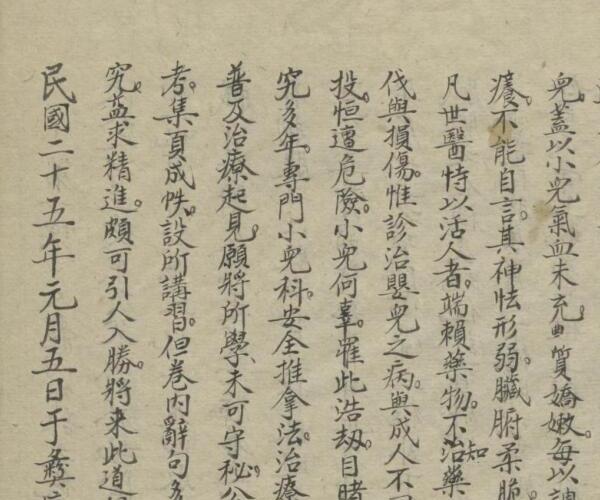 兒。蓋以小兒氣血未充。曲質嬌嫩。每以
癢。不能自言。其神怯形弱。臟腑柔脆。
凡世醫恃以活人者。端賴藥物。不知治藥
伐與損傷。惟診治嬰兒之病。與成人不同
投。恒遭危險。小兒何辜。罹此浩劫。目睹
究多年。專門小兒科。安全推拿法。治療
普及治療起見。願將所學未可守秘。公
考。集頁成帙。設所講習。但卷內辭句多
究。益求精進。頗可引人入勝。將来此道
民國二十五年元月五日于彝